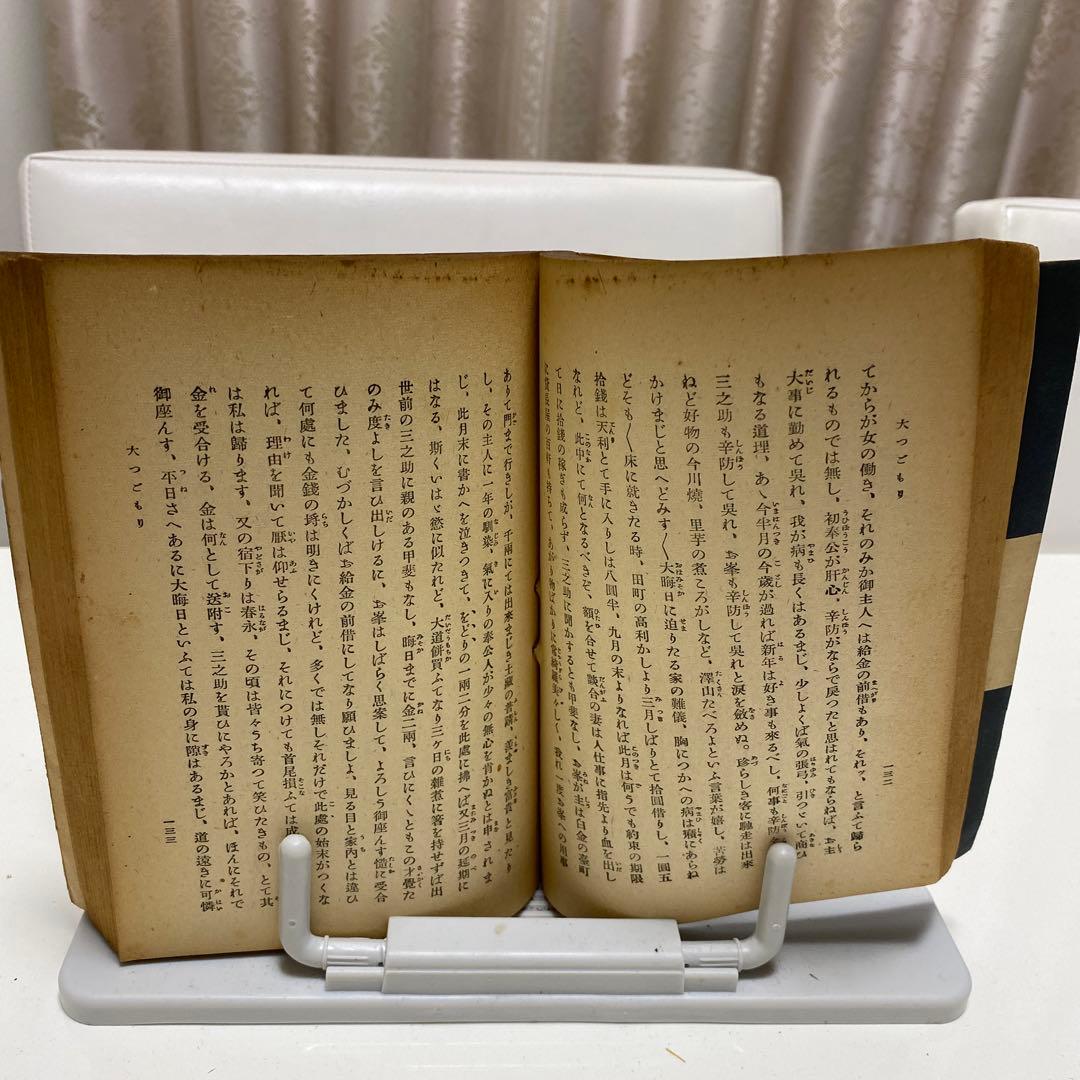 大つごもり
一三二
てからが女の働き、それのみか御主人へは給金の前借もあり、それッ、と言ふて歸ら
れるものでは無し、初奉公が肝心、辛防がならで戻つたと思はれてもならねば、お主
大事に勤めて呉れ、我が病も長くはあるまじ、少しよくば氣の張弓、引つゞいて商ひ
もなる道理、あゝ今半月の今歳が過れば新年は好き事も來るべし、何事も辛防
三之助も辛防して呉れ、お峯も辛防して呉れと涙を斂めぬ。珍らしき客に馳走は出來
ねど好物の今川燒、里芋の煮ころがしなど、澤山たべろよといふ言葉が嬉し、苦勞は
かけまじと思へどみす〳〵大晦日に迫りたる家の難儀、胸につかへの病は癪にあらね
どそも〳〵床に就きたる時、田町の高利かしより三月しばりとて拾圓借りし、一圓五
拾錢は天利とて手に入りしは八圓半、九月の末よりなれば此月は何うでも約束の期限
なれど、此中にて何となるべきぞ、額を合せて談合の妻は人仕事に指先より血を出し
て日に拾錢の稼ぎも成らず、三之助に聞かするとも甲斐なし、お峯が主は白金の臺町
に貸長屋の百軒も持ちて、あがり物ばかりに常綺羅美々しく、我れ一度お峯への用事
ありて門まで行きしが、千兩にては出來まじき土藏の普請、羨ましき富貴と見たり
し、その主人に一年の馴染、氣に入りの奉公人が少々の無心を肯かぬとは申されま
じ、此月末に書かへを泣きつきて、をどりの一兩二分を此處に拂へば又三月の延期に
はなる、斯くいはゞ慾に似たれど、大道餠買ふてなり三ケ日の雜煮に箸を持せずば出
世前の三之助に親のある甲斐もなし、晦日までに金二兩、言ひにくゝともこの才覺た
のみ度よしを言ひ出しけるに、お峯はしばらく思案して、よろしう御座んす慥に受合
ひました、むづかしくばお給金の前借にしてなり願ひましよ、見る目と家内とは違ひ
て何處にも金錢の埓は明きにくけれど、多くでは無しそれだけで此處の始末がつくな
れば、理由を聞いて厭は仰せらるまじ、それにつけても首尾損ふては成
は私は歸ります、又の宿下りは春永、その頃は皆々うち寄つて笑ひたきもの、とて其
金を受合ける、金は何として送附す、三之助を貰ひにやろかとあれば、ほんにそれで
御座んす、平日さへあるに大晦日といふては私の身に隙はあるまじ、道の遠きに可憐
大つごもり
一三三